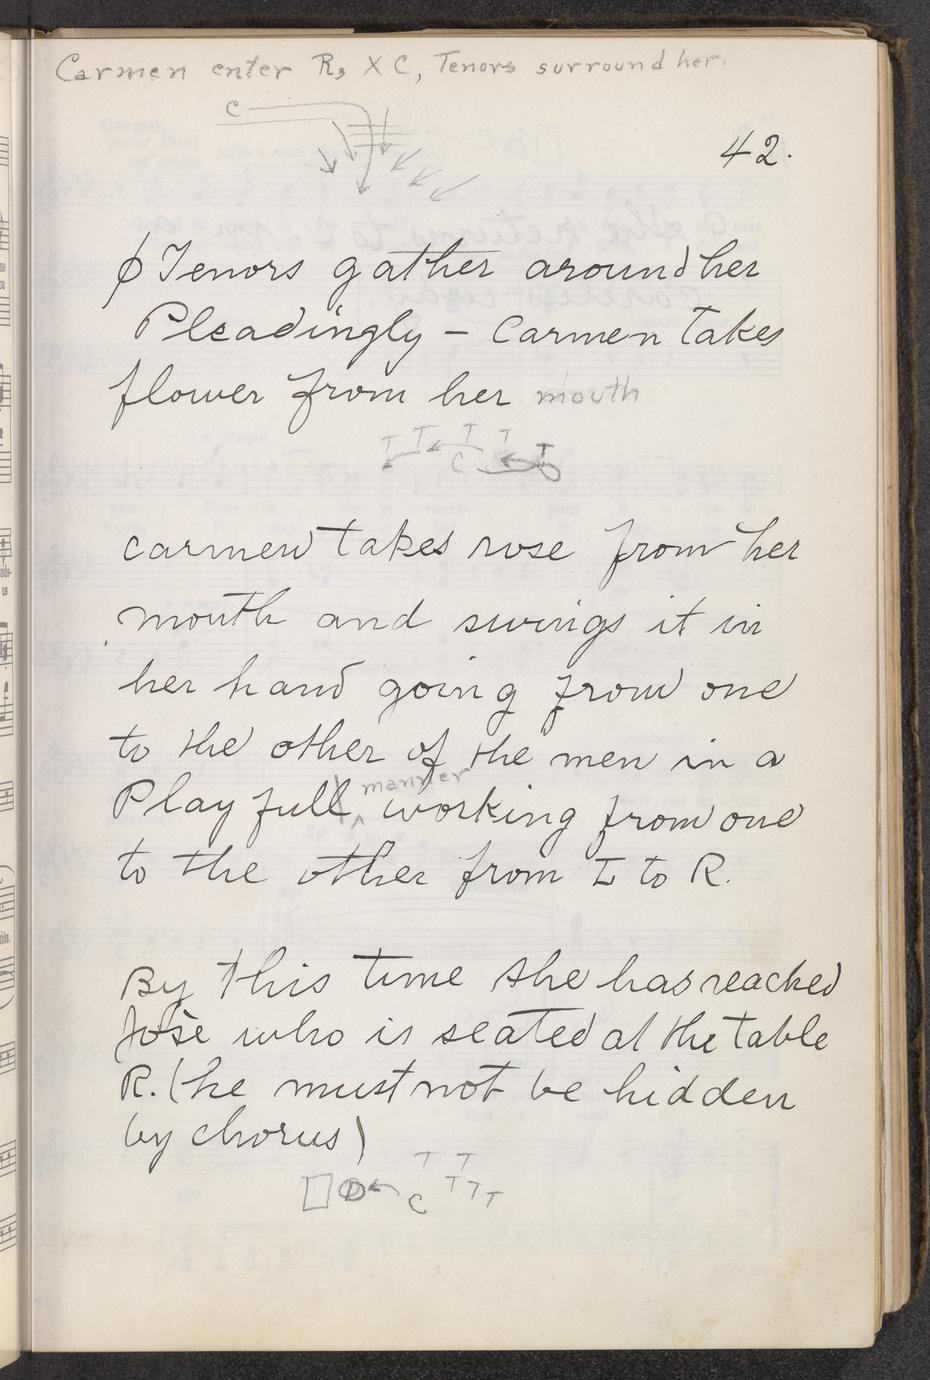 Carmen enter R, X C, Tenors surround her.
C
42.
φ Tenors gather around her
Pleadingly – Carmen takes
flower from her mouth
T T T T T
C
carmen takes rose from her
mouth and swings it in
her hand going from one
to the other of the men in a
manner
Play full ^ working from one
to the other from L to R.
By this time she has reached
José who is seated at the table
R. (he must not be hidden
by chorus)
T T
D C T T T